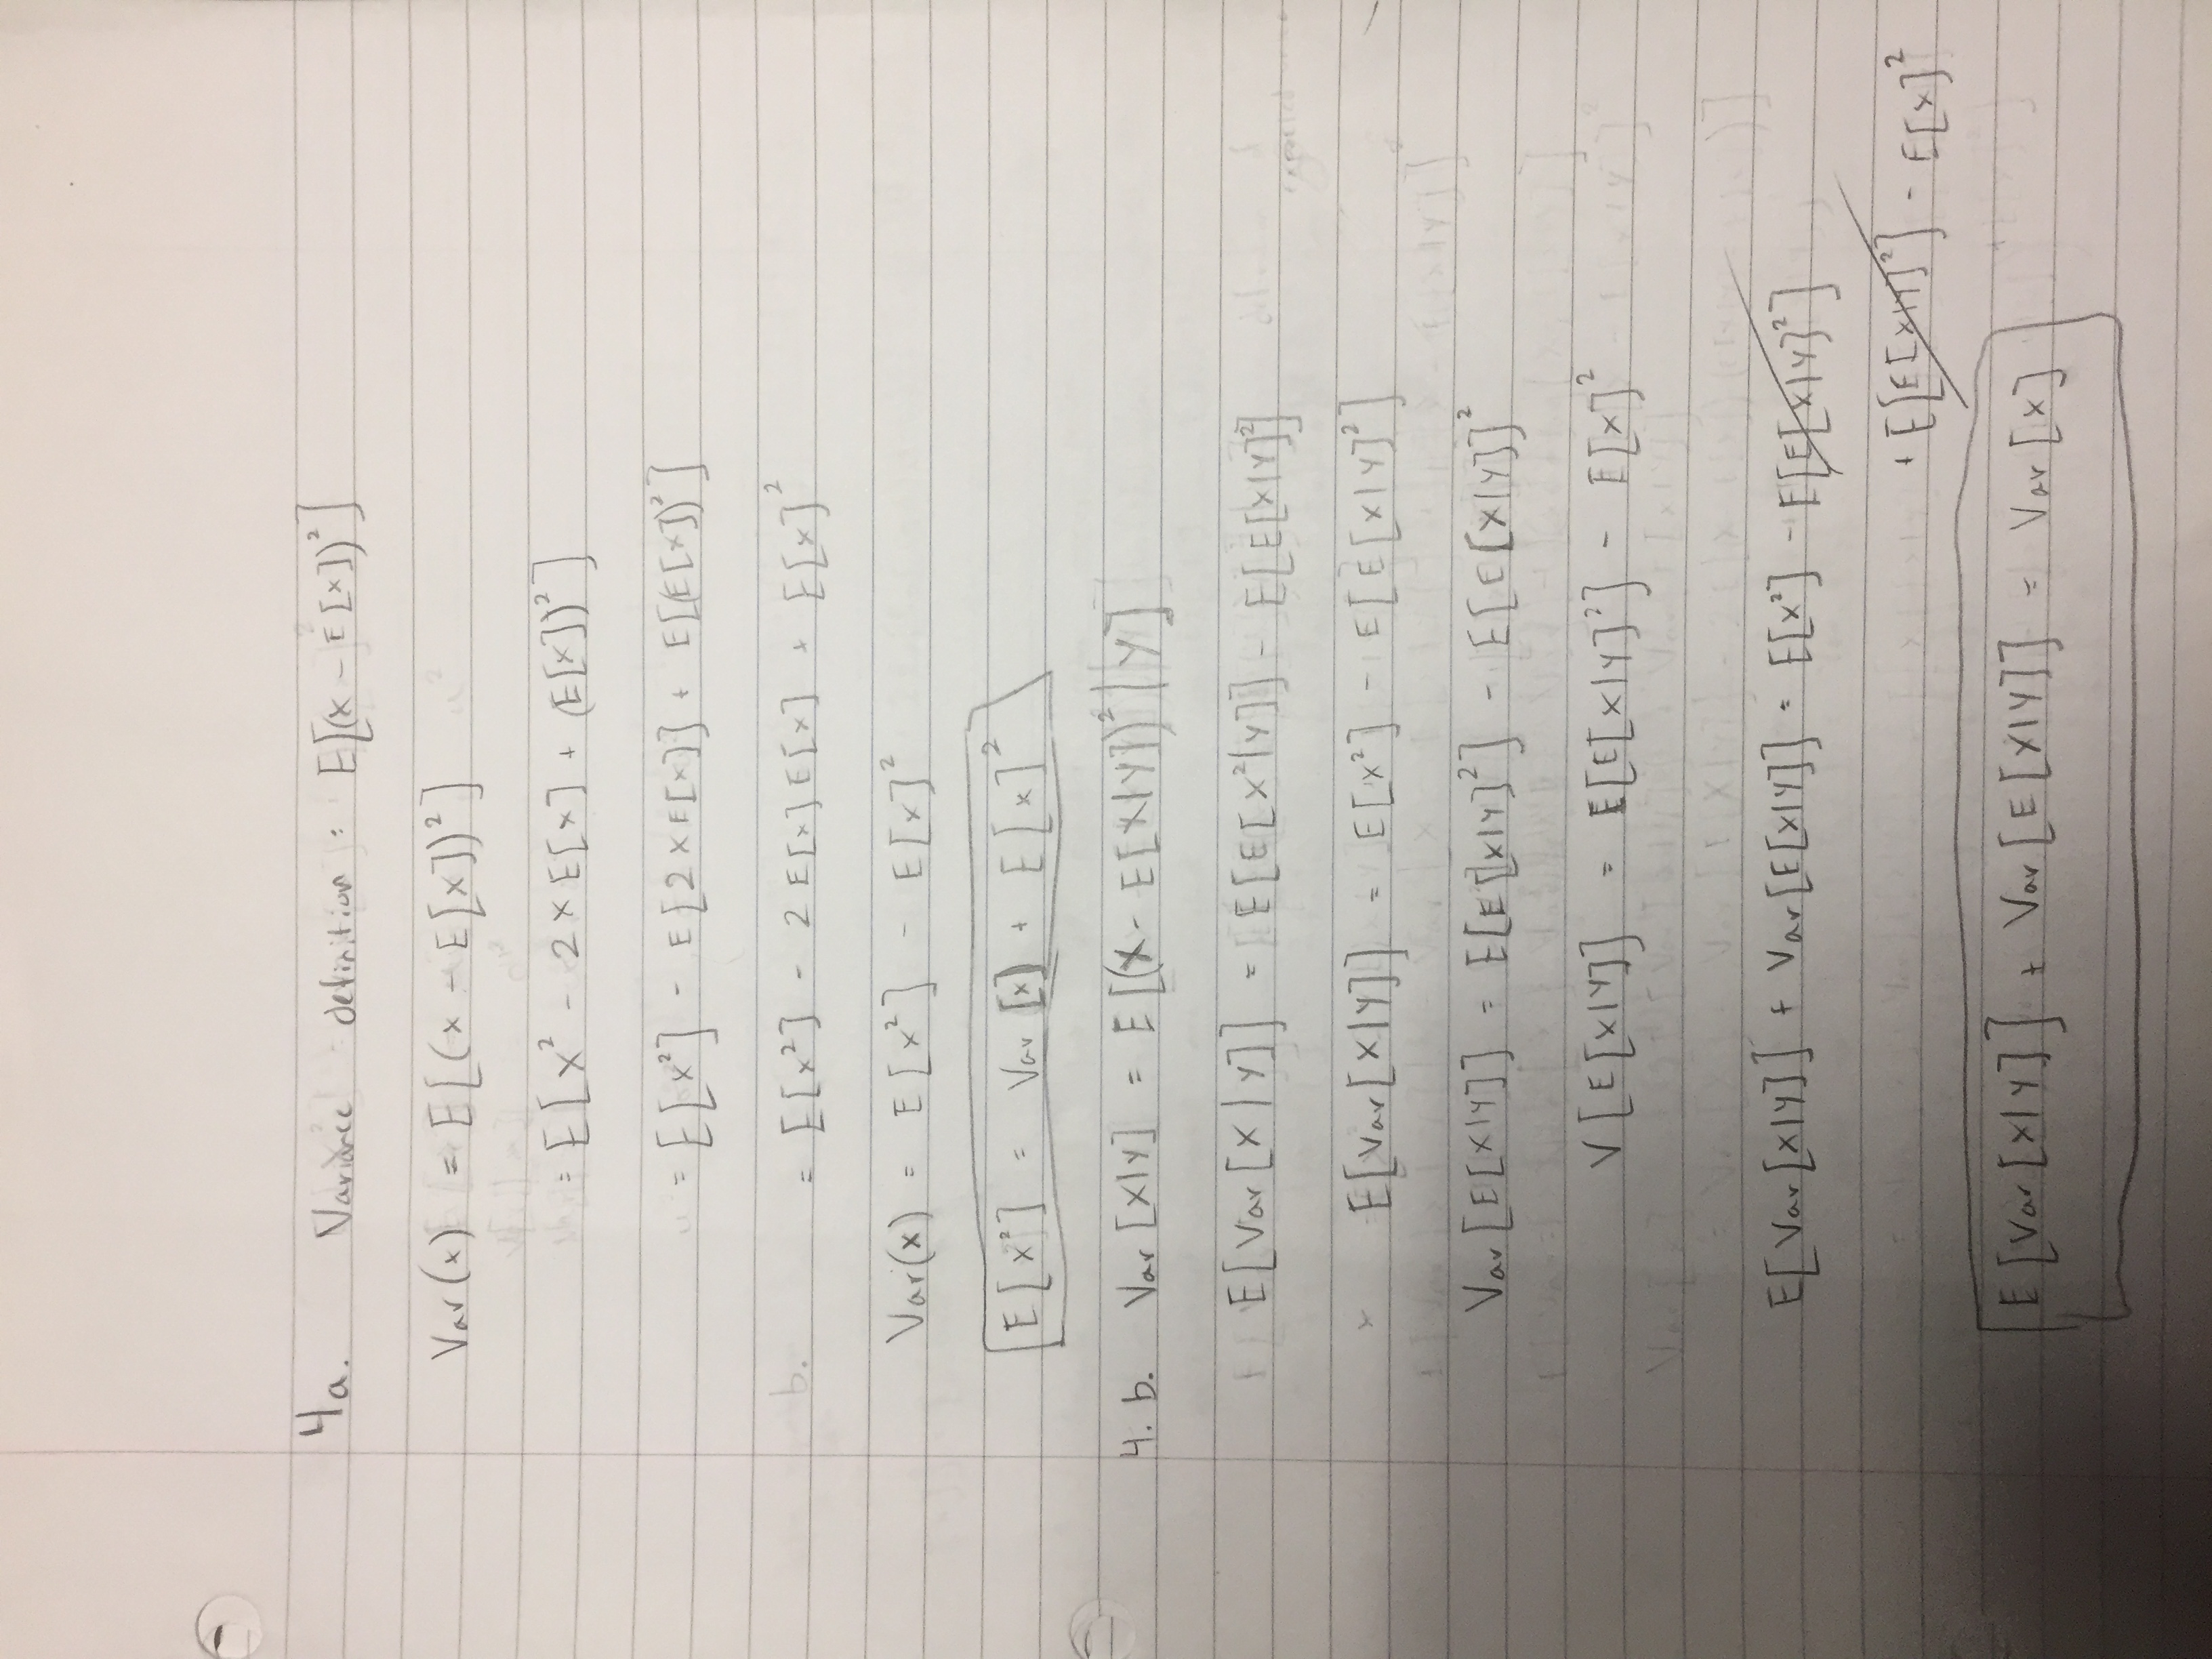 4a. Variance definition : E[(x - E[x])²]
Var(x) = E[(x - E[x])²]
= E[x² - 2xE[x] + (E[x])²]
= E[x²] - E[2xE[x]] + E[(E[x])²]
b. = E[x²] - 2E[x]E[x] + E[x]²
Var(x) = E[x²] - E[x]²
E[x²] = Var[x] + E[x]²
4. b. Var[X|Y] = E[(X - E[X|Y])²|Y]
E[Var[X|Y]] = E[E[X²|Y]] - E[E[X|Y]²]
E[Var[X|Y]] = E[x²] - E[E[X|Y]²]
Var[E[X|Y]] = E[E[X|Y]²] - E[E[X|Y]]²
V[E[X|Y]] = E[E[X|Y]²] - E[x]²
E[Var[X|Y]] + Var[E[X|Y]] = E[x²] - E[E[X|Y]²]
+ E[E[X|Y]²] - E[x]²
E[Var[X|Y]] + Var[E[X|Y]] = Var[x]